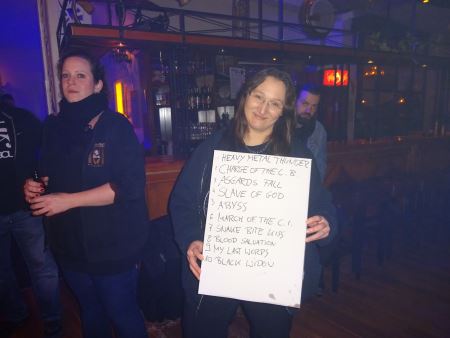 HEAVY METAL THUNDER
1 CHARGE OF THE L.B.
3 ASGARDS FALL
4 SLAVE OF GOD
5 ABYSS
6 MARCH OF THE C.I.
7 SNAKE BITE KISS
8 BLOOD SALVATION
9 MY LAST WORDS
10 BLACK WIDOW